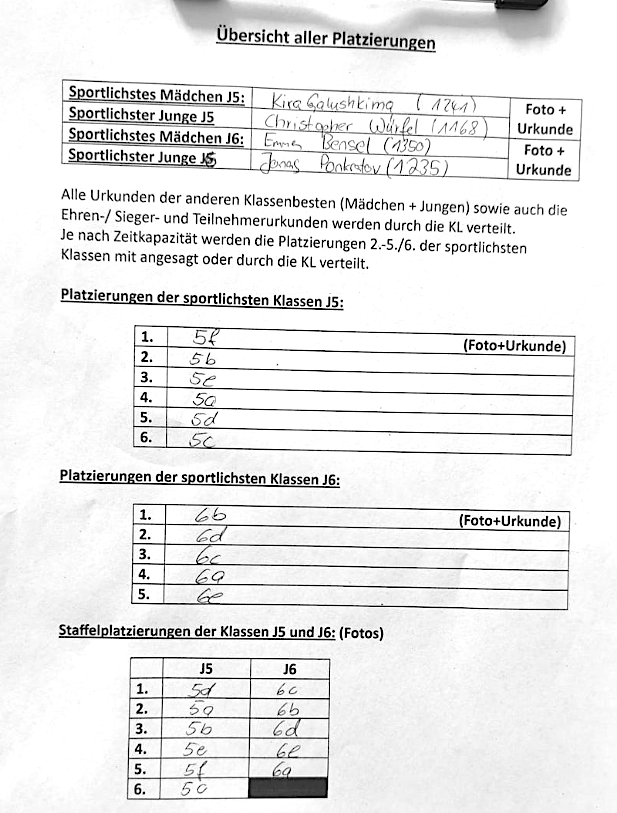 Übersicht aller Platzierungen
Sportlichstes Mädchen J5: Kira Galushkima (1241) Foto +
Sportlichster Junge J5 Christopher Würfel (1168) Urkunde
Sportlichstes Mädchen J6: Emma Bensel (1350) Foto +
Sportlichster Junge J6 Jonas Ponkratov (1235) Urkunde
Alle Urkunden der anderen Klassenbesten (Mädchen + Jungen) sowie auch die
Ehren-/ Sieger- und Teilnehmerurkunden werden durch die KL verteilt.
Je nach Zeitkapazität werden die Platzierungen 2.-5./6. der sportlichsten
Klassen mit angesagt oder durch die KL verteilt.
Platzierungen der sportlichsten Klassen J5:
1. 5f (Foto+Urkunde)
2. 5b
3. 5e
4. 5a
5. 5d
6. 5c
Platzierungen der sportlichsten Klassen J6:
1. 6b (Foto+Urkunde)
2. 6d
3. 6c
4. 6a
5. 6e
Staffelplatzierungen der Klassen J5 und J6: (Fotos)
J5 J6
1. 5d 6c
2. 5a 6b
3. 5b 6d
4. 5e 6e
5. 5f 6a
6. 5c